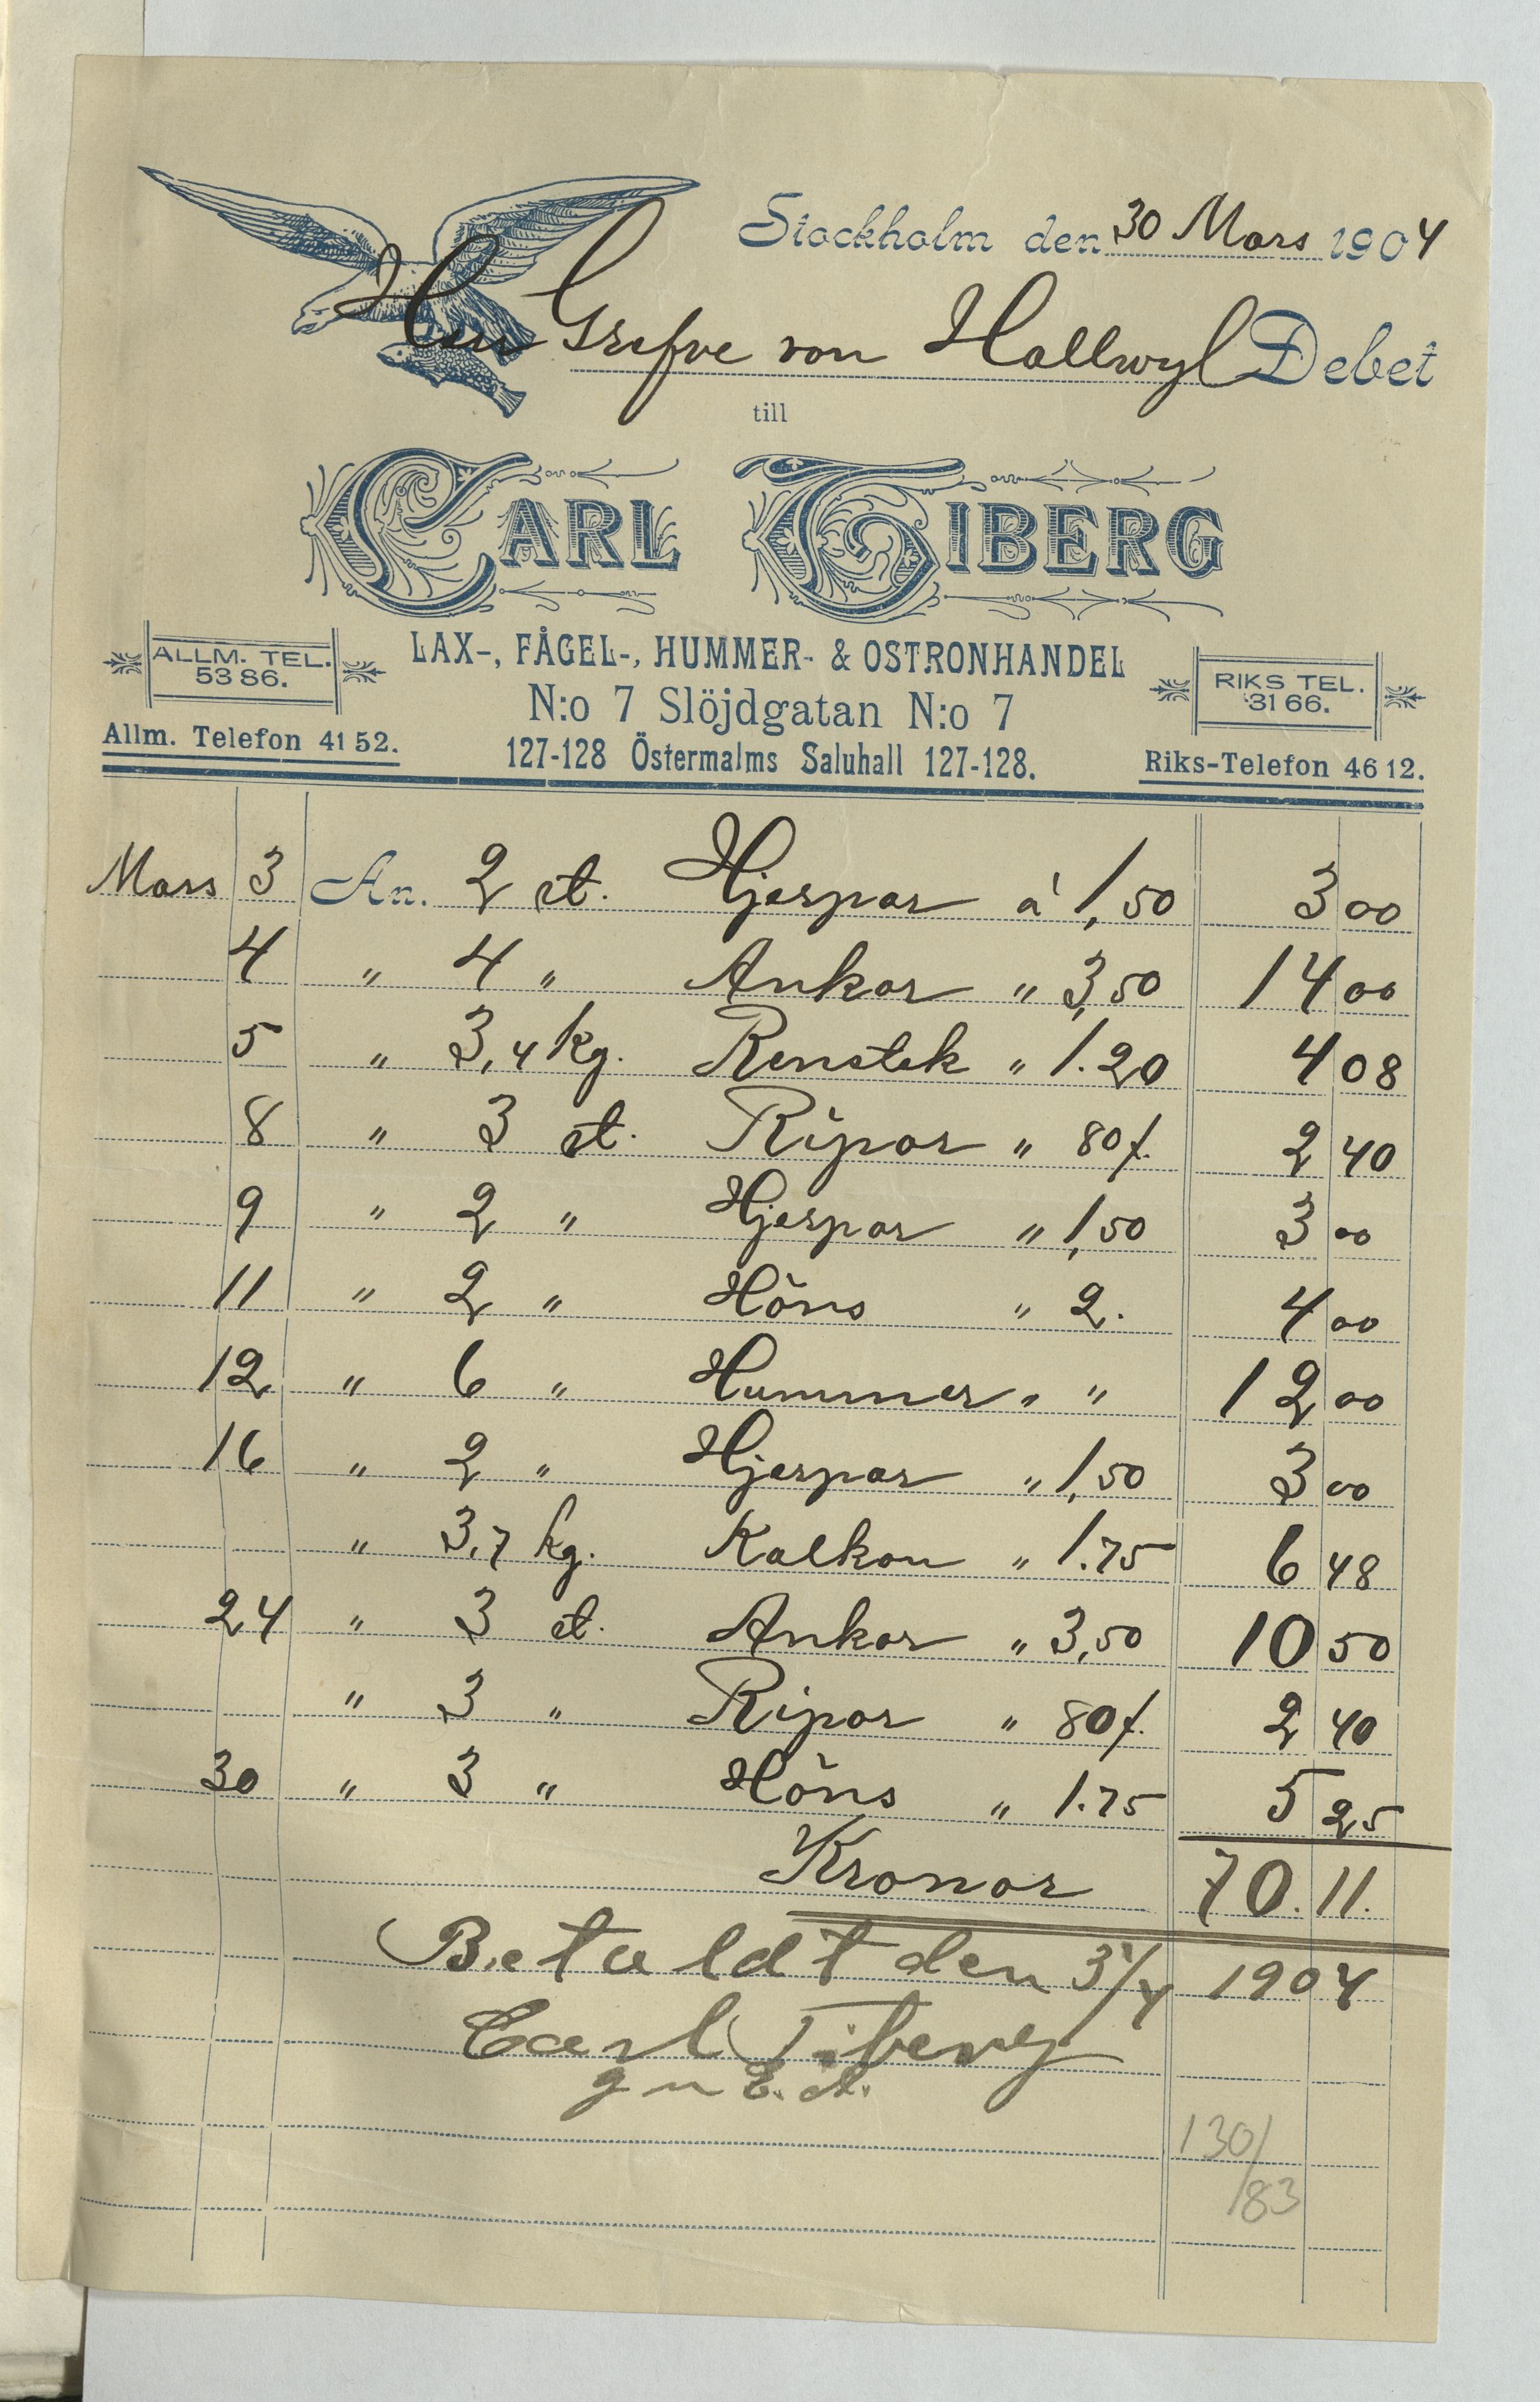 Stockholm den 30 Mars 1904
Herr Grefve von Hallwyl Debet
till
CARL TIBERG
LAX-, FÅGEL-, HUMMER- & OSTRONHANDEL
ALLM. TEL. 5386.
RIKS TEL. 3166.
N:o 7 Slöjdgatan N:o 7
Allm. Telefon 41 52.
127-128 Östermalms Saluhall 127-128.
Riks-Telefon 46 12.
Mars 3 An. 2 st. Hjerpar á 1,50 3 00
4 " 4 " Ankor " 3,50 14 00
5 " 3,4 kg. Renstek " 1.20 4 08
8 " 3 st. Ripor " 80 f. 2 40
9 " 2 " Hjerpar " 1,50 3 00
11 " 2 " Höns " 2. 4 00
12 " 6 " Hummer " " 12 00
16 " 2 " Hjerpar " 1,50 3 00
" 3,7 kg. Kalkon " 1.75 6 48
24 " 3 st. Ankor " 3,50 10 50
" 3 " Ripor " 80 f. 2 40
30 " 3 " Höns " 1.75 5 25
Kronor 70.11.
Betaldt den 3/4 1904
Carl Tiberg
130/
/83